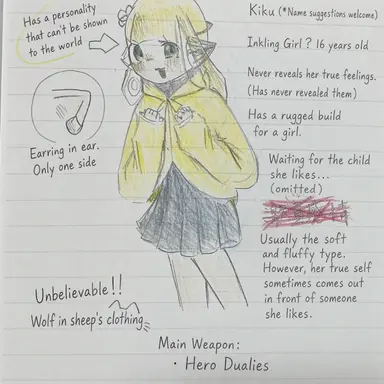 Has a personality
that can't be shown
to the world
Earring in ear.
Only one side
Unbelievable!!
Wolf in sheep's clothing
Kiku (*Name suggestions welcome)
Inkling Girl? 16 years old
Never reveals her true feelings.
(Has never revealed them)
Has a rugged build
for a girl.
Waiting for the child
she likes...
(omitted)
Usually the soft
and fluffy type.
However, her true self
sometimes comes out
in front of someone
she likes.
Main Weapon:
・Hero Dualies